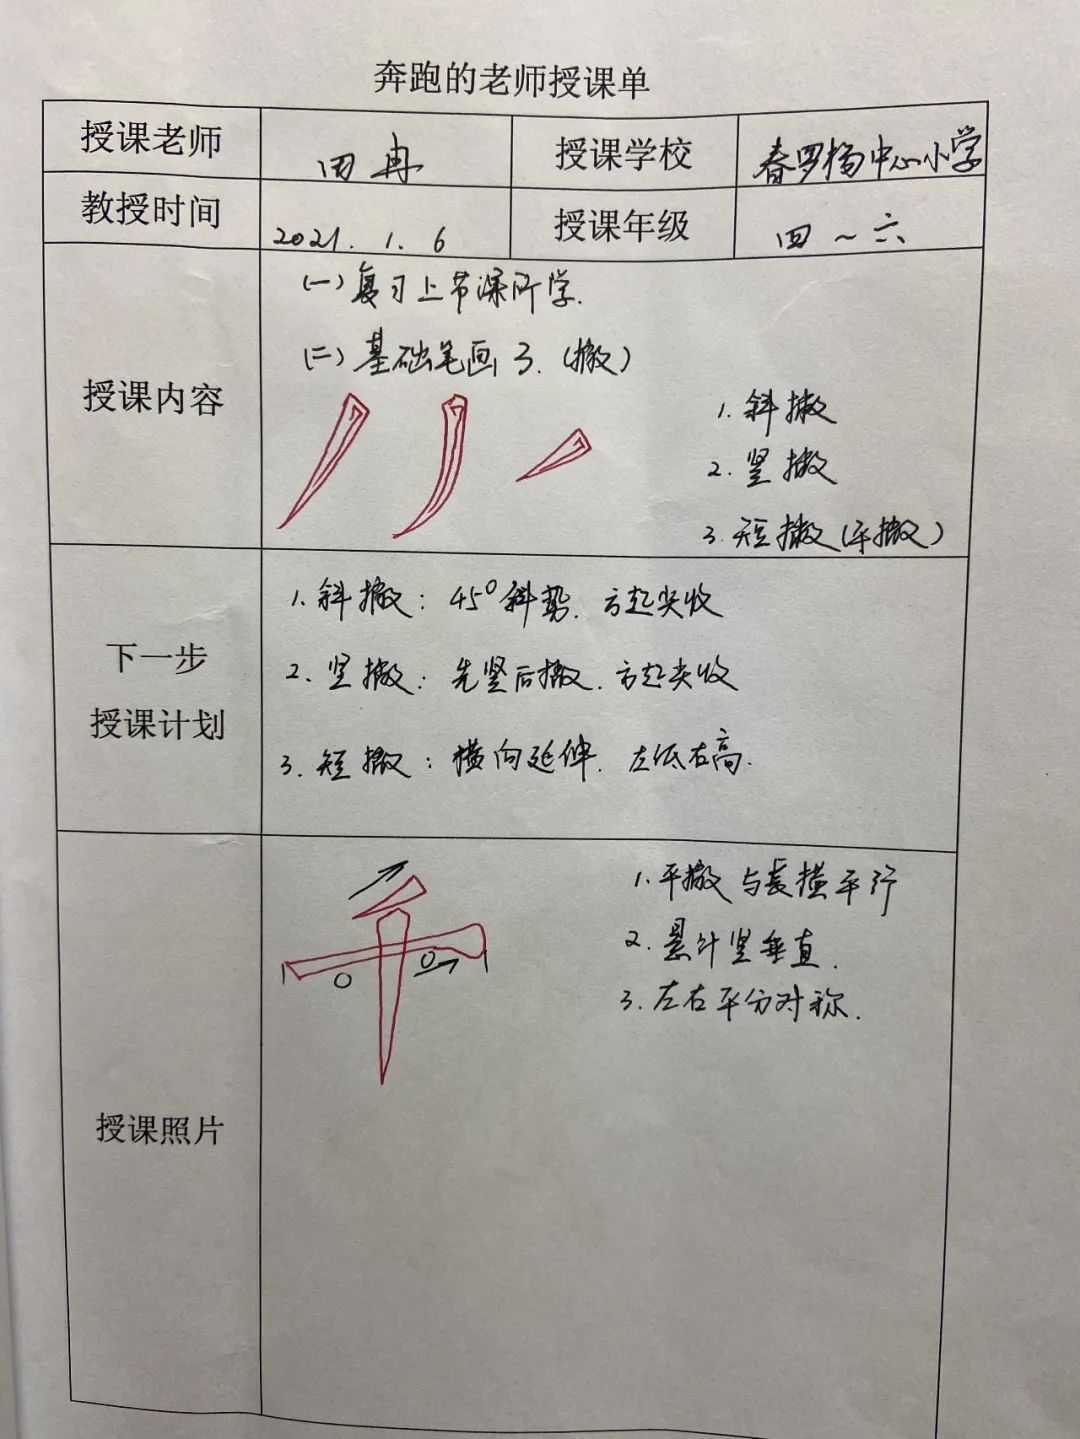 奔跑的老师授课单
授课老师 田冉 授课学校 春罗杨中心小学
教授时间 2021.1.6 授课年级 四~六
授课内容
(一)复习上节课所学.
(二)基础笔画3.(撇)
1.斜撇
2.竖撇
3.短撇(平撇)
下一步
授课计划
1.斜撇:45°斜势.方起尖收
2.竖撇:先竖后撇.方起尖收
3.短撇:横向延伸.左低右高.
授课照片
1.平撇与长横平行
2.悬针竖垂直.
3.左右平分对称.